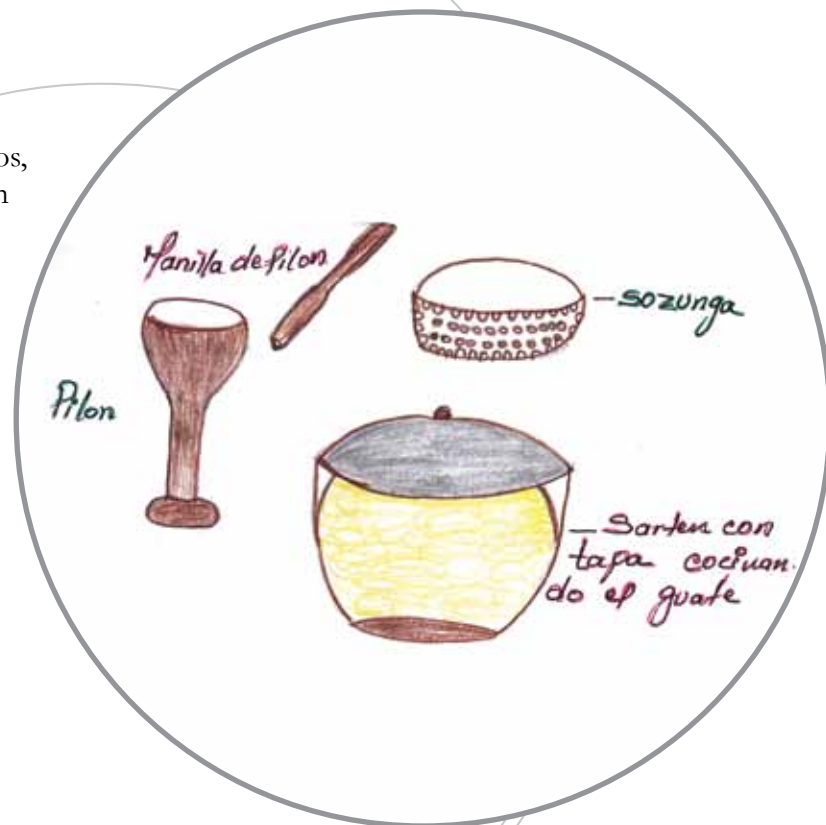 os,
n
Manilla de Pilon
sozunga
Pilon
Sarten con
tapa cocinan.
do el guate